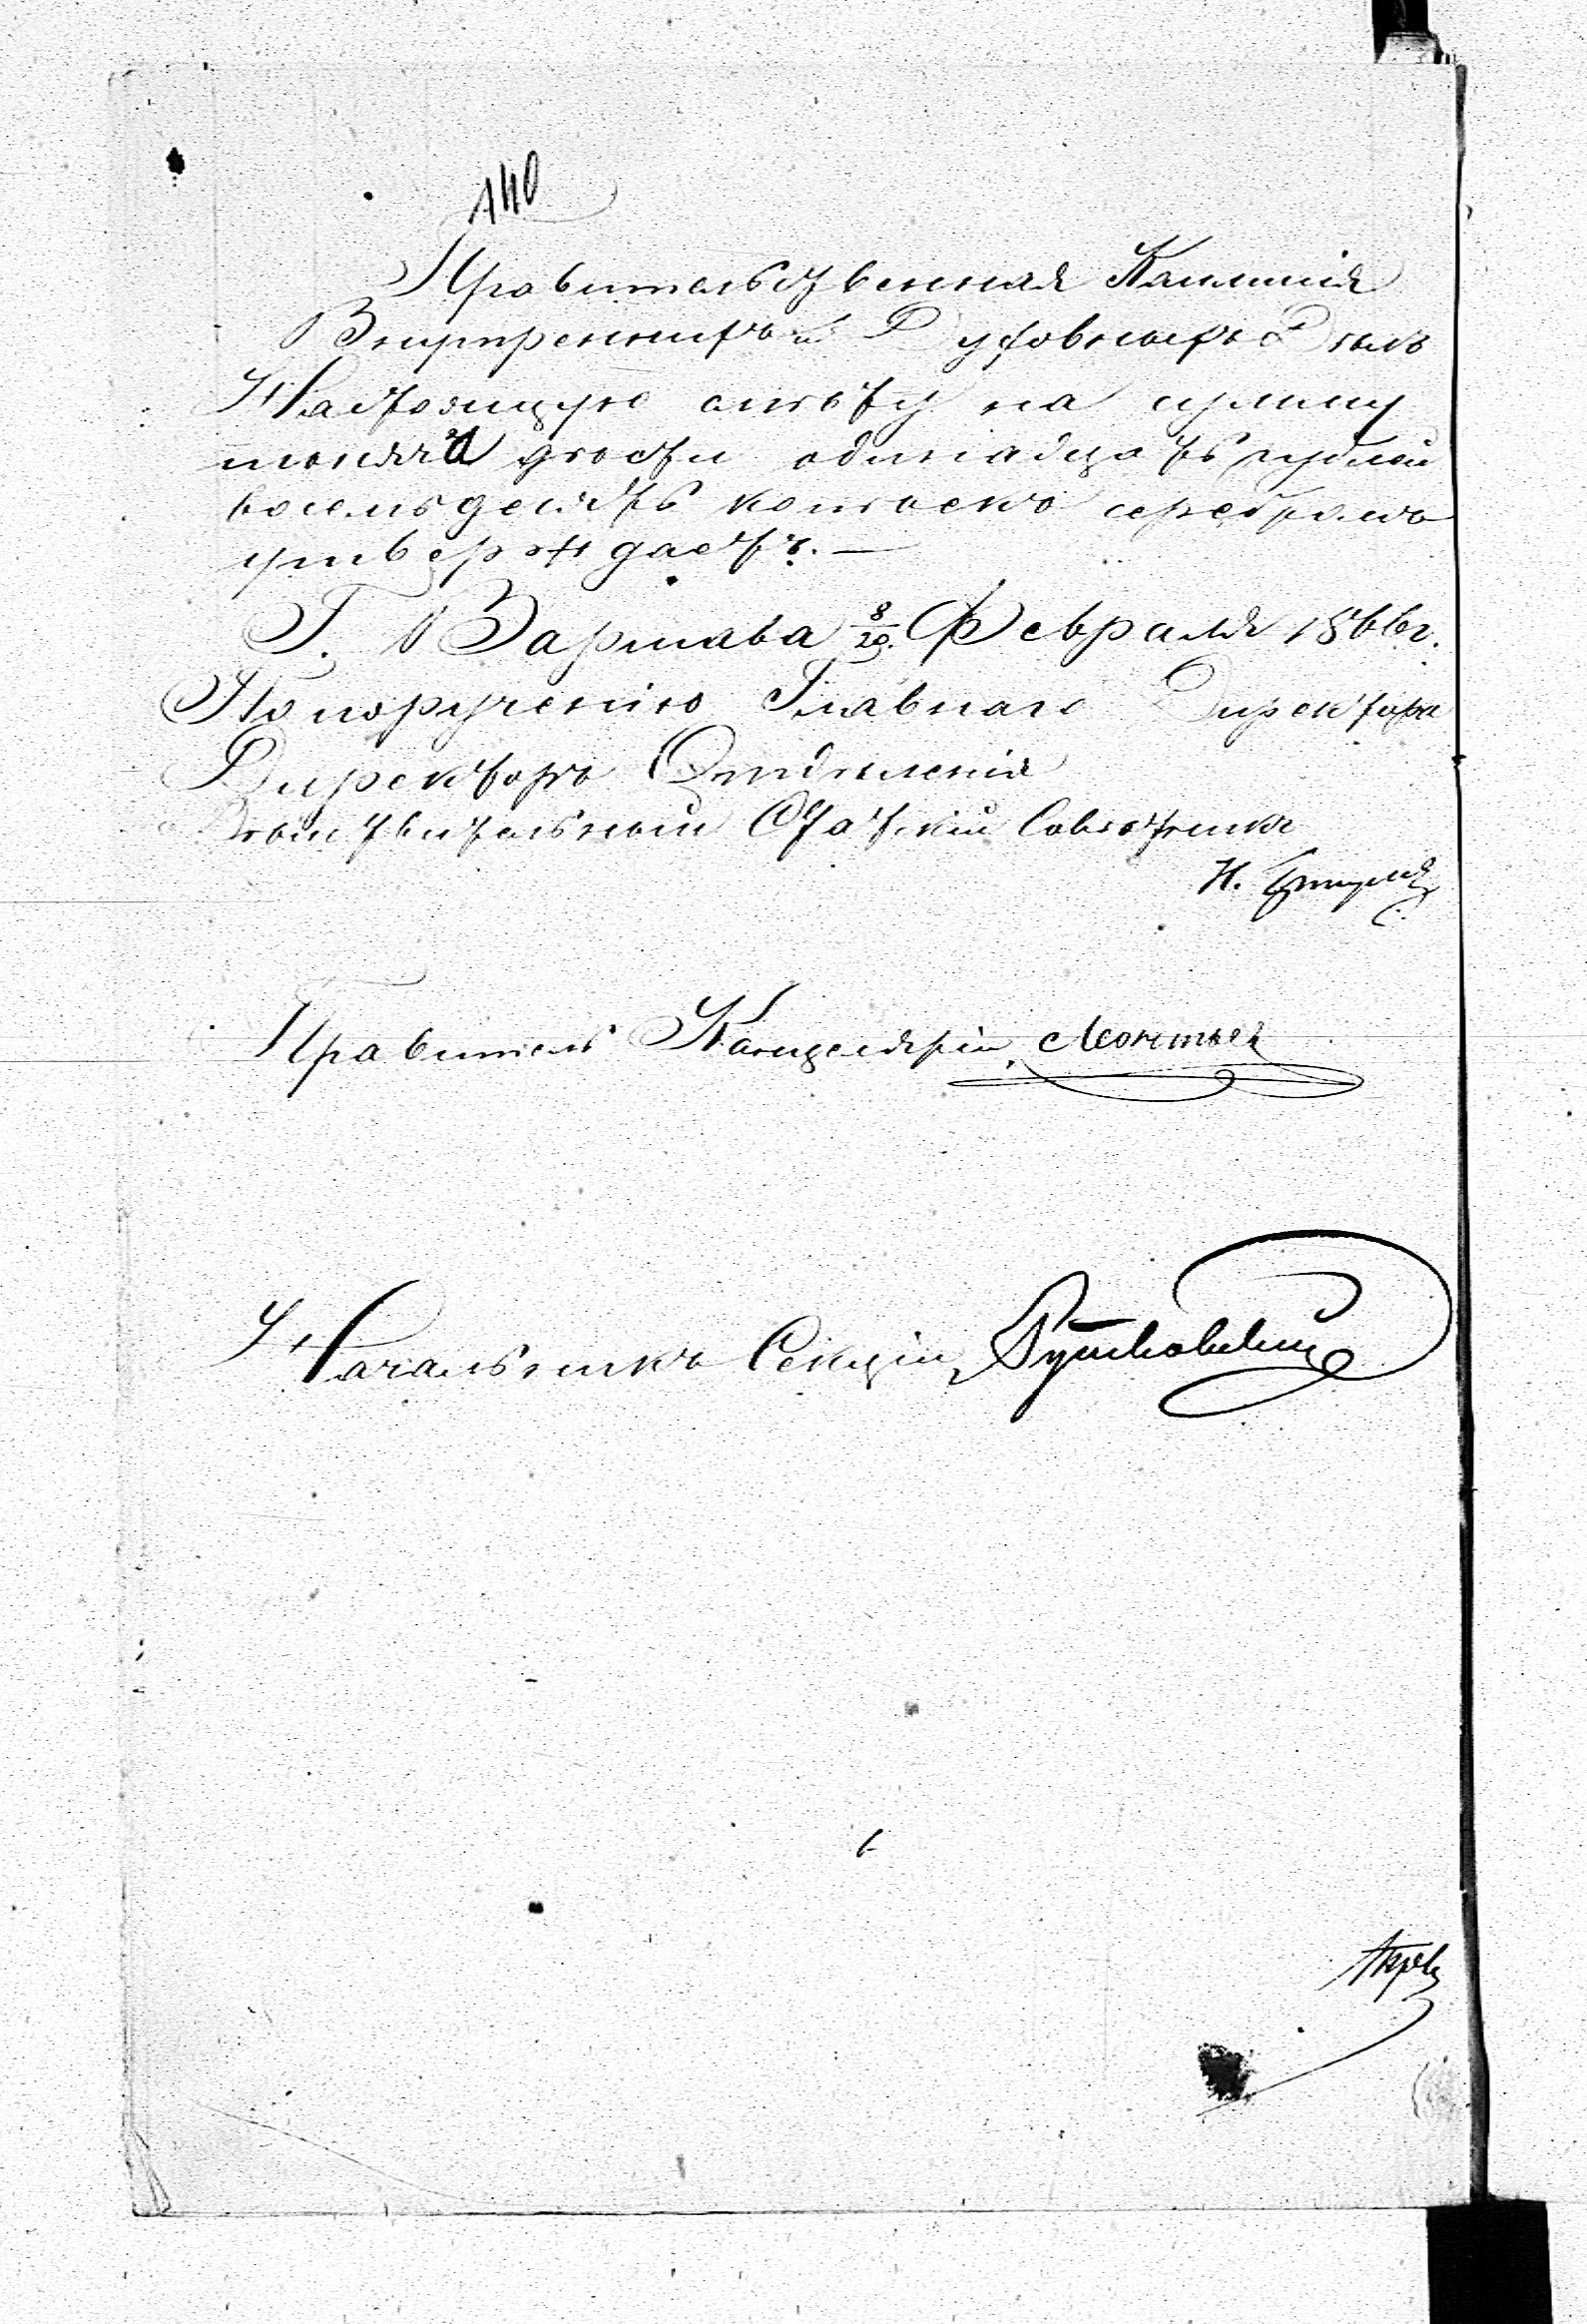 140
Правительственная Коммисія
Внутреннихъ и Духовныхъ Дѣлъ
Настоящую смѣту на сумму
тысяча двѣсти одинадцать рублей
восемьдесятъ копѣекъ серебромъ
утверждаетъ.—
Г. Варшава 8/20 Февраля 1866г.
По порученію Главнаго Директора
Директоръ Отдѣленія
Дѣйствительный Статскій Совѣтникъ
Н.
Правитель Канцеляріи, Леонтьев
Начальникъ Секціи,